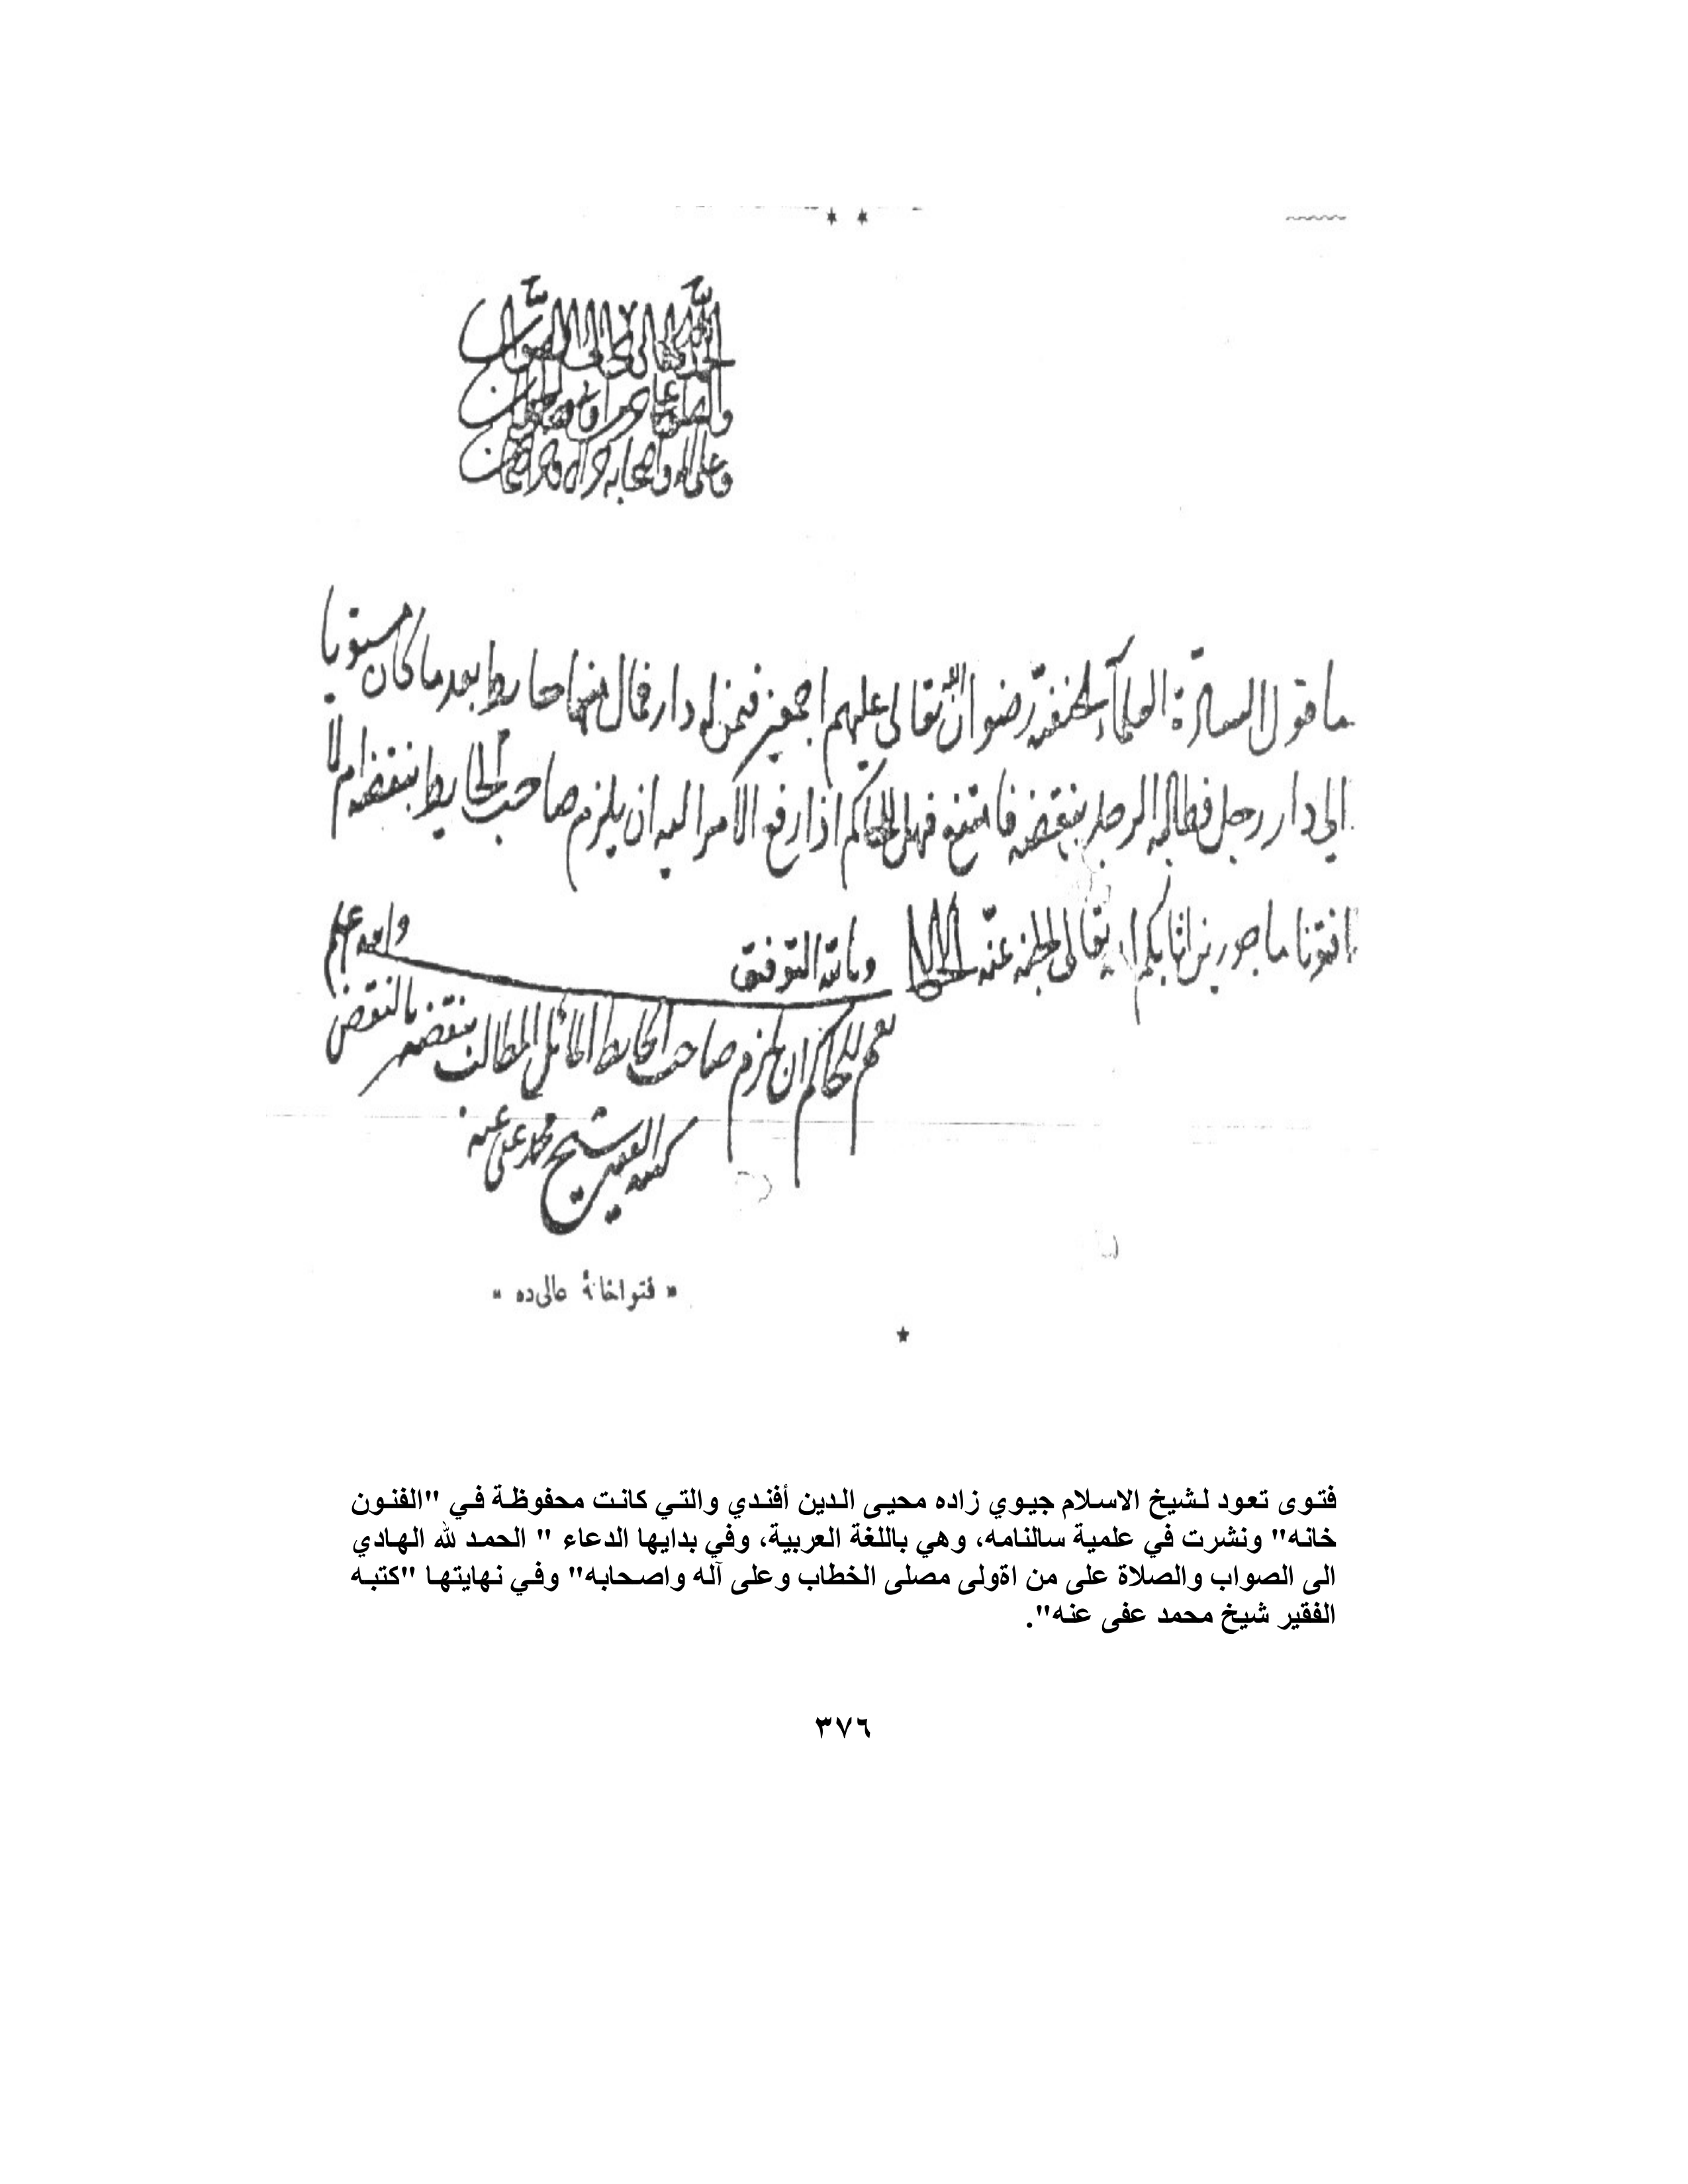 ما قول السادة العلماء الحنفية رضوان الله تعالى عليهم اجمعين فيمن له دار فمال منها حايط بعد ما كان مستويا
الى دار رجل فطالبه الرجل بنقضه فامتنع فهل للحاكم اذا رفع الامر اليه ان يلزم صاحب الحايط بنقضه ام لا
افتونا ماجورين اثابكم الله تعالى الجنة عنه
وبالله التوفيق
والله اعلم
نعم للحاكم ان يلزم صاحب الحايط المائل المطالب بنقضه بالنقض
كتبه الفقير شيخ محمد عفى عنه
« فتواخانهٔ عالى ده »
فتوى تعود لشيخ الاسلام جيوي زاده محيى الدين أفندي والتي كانت محفوظة في "الفنون
خانه" ونشرت في علمية سالنامه، وهي باللغة العربية، وفي بدايها الدعاء " الحمد لله الهادي
الى الصواب والصلاة على من اةولى مصلى الخطاب وعلى آله واصحابه" وفي نهايتها "كتبه
الفقير شيخ محمد عفى عنه".
٣٧٦